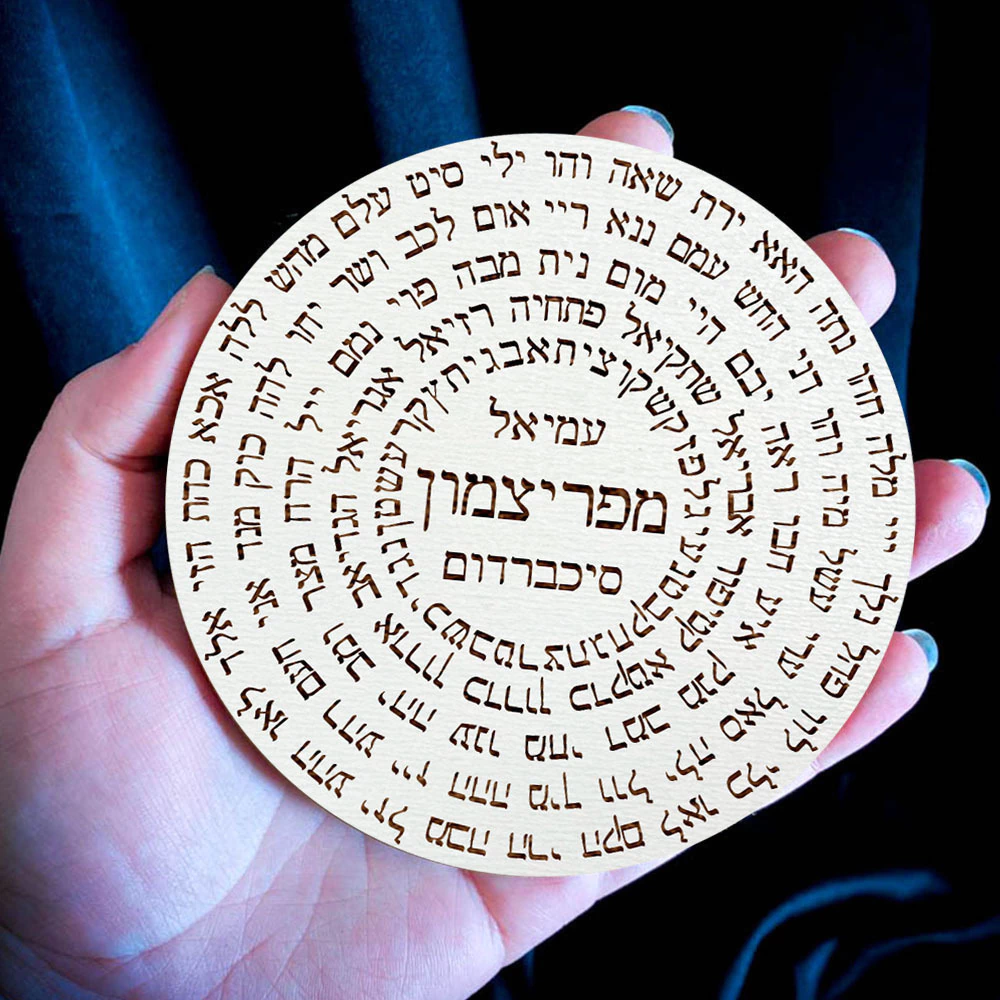 והו ילי סיט עלם מהש ללה אכא כהת הזי אלד לאו ההע יזל מבה הרי הקם לאו כלי לוו פהל נלך ייי מלה חהו נתה האא ירת שאה
ריי אום לכב ושר יחו להח כוק מנד אני חעם רהע ייז ההה מיך וול ילה סאל ערי עשל מיה והו דני החש עמם ננא
נית מבה פוי נמם ייל הרח מצר ומב יהה ענו מחי דמב מנק איע חבו ראה יבם היי מום
פתחיה רזיאל אגריאל אבריאל שתקיאל
אבגיתץ קרעשטן נגדיכש בטרצתג חקבטנע יגלפזק שקוצית
עמיאל
מפריצמון
סיכברדום